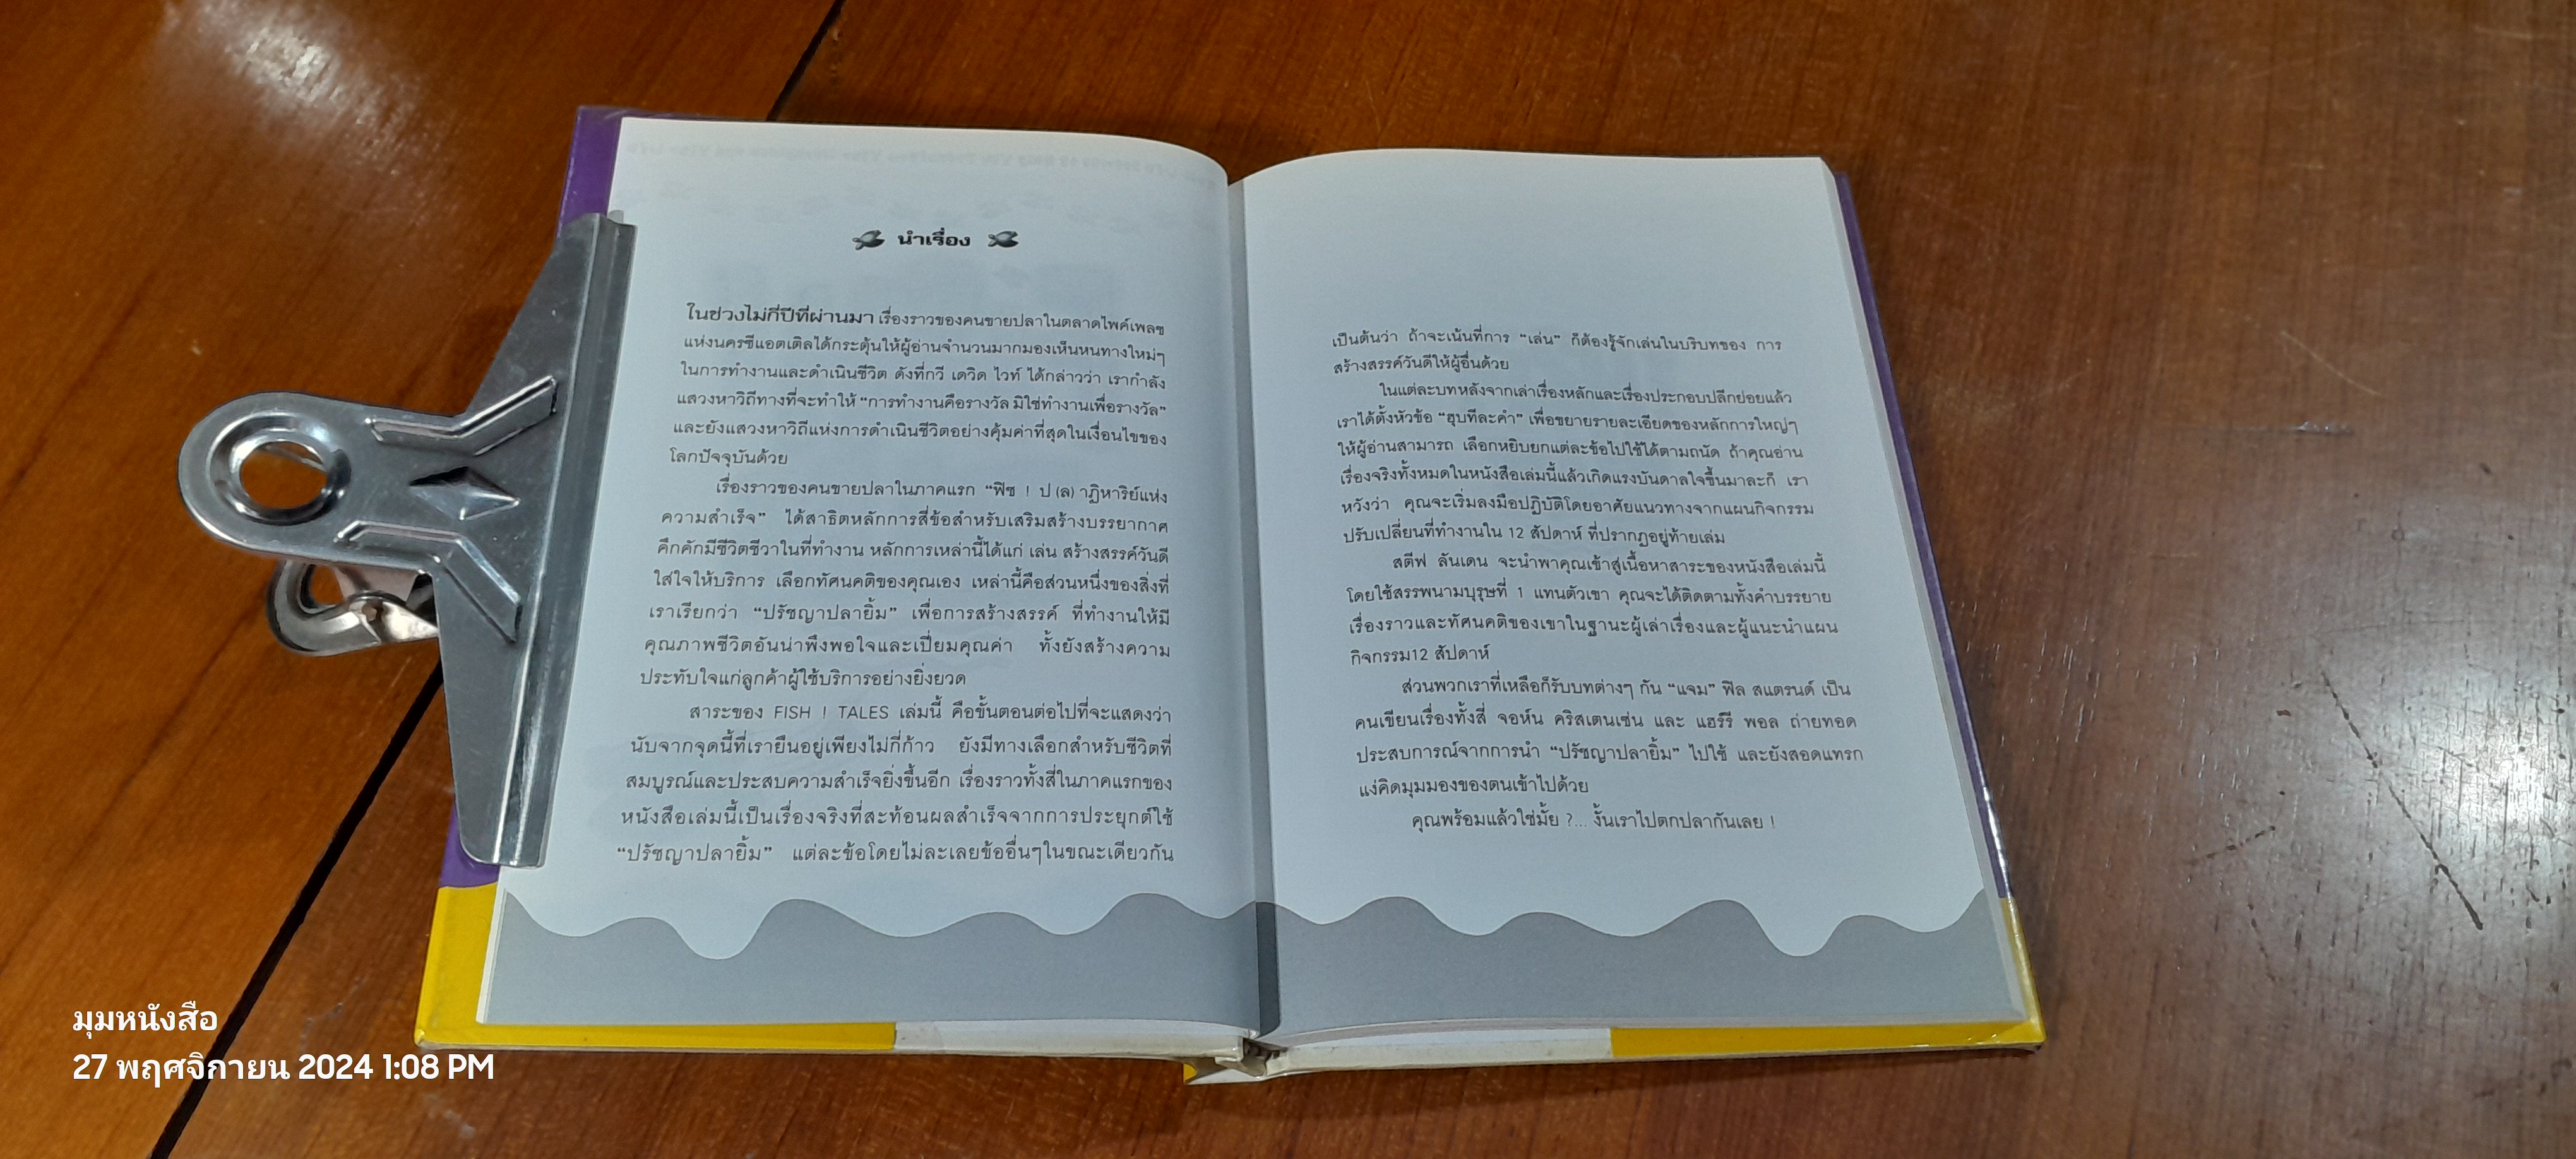 นำเรื่อง
ในช่วงไม่กี่ปีที่ผ่านมา เรื่องราวของคนขายปลาในตลาดไพค์เพลซ
แห่งนครซีแอตเติลได้กระตุ้นให้ผู้อ่านจำนวนมากมองเห็นหนทางใหม่ๆ
ในการทำงานและดำเนินชีวิต ดังที่กวี เดวิด ไวท์ ได้กล่าวว่า เรากำลัง
แสวงหาวิถีทางที่จะทำให้ “การทำงานคือรางวัล มิใช่ทำงานเพื่อรางวัล”
และยังแสวงหาวิถีแห่งการดำเนินชีวิตอย่างคุ้มค่าที่สุดในเงื่อนไขของ
โลกปัจจุบันด้วย
เรื่องราวของคนขายปลาในภาคแรก “ฟิช ! ป (ล) าฏิหาริย์แห่ง
ความสำเร็จ” ได้สาธิตหลักการสี่ข้อสำหรับเสริมสร้างบรรยากาศ
คึกคักมีชีวิตชีวาในที่ทำงาน หลักการเหล่านี้ได้แก่ เล่น สร้างสรรค์วันดี
ใส่ใจให้บริการ เลือกทัศนคติของคุณเอง เหล่านี้คือส่วนหนึ่งของสิ่งที่
เราเรียกว่า “ปรัชญาปลายิ้ม” เพื่อการสร้างสรรค์ ที่ทำงานให้มี
คุณภาพชีวิตอันน่าพึงพอใจและเปี่ยมคุณค่า ทั้งยังสร้างความ
ประทับใจแก่ลูกค้าผู้ใช้บริการอย่างยิ่งยวด
สาระของ FISH ! TALES เล่มนี้ คือขั้นตอนต่อไปที่จะแสดงว่า
นับจากจุดนี้ที่เรายืนอยู่เพียงไม่กี่ก้าว ยังมีทางเลือกสำหรับชีวิตที่
สมบูรณ์และประสบความสำเร็จยิ่งขึ้นอีก เรื่องราวทั้งสี่ในภาคแรกของ
หนังสือเล่มนี้เป็นเรื่องจริงที่สะท้อนผลสำเร็จจากการประยุกต์ใช้
“ปรัชญาปลายิ้ม” แต่ละข้อโดยไม่ละเลยข้ออื่นๆในขณะเดียวกัน
เป็นต้นว่า ถ้าจะเน้นที่การ “เล่น” ก็ต้องรู้จักเล่นในบริบทของ การ
สร้างสรรค์วันดีให้ผู้อื่นด้วย
ในแต่ละบทหลังจากเล่าเรื่องหลักและเรื่องประกอบปลีกย่อยแล้ว
เราได้ตั้งหัวข้อ “ฮุบทีละคำ” เพื่อขยายรายละเอียดของหลักการใหญ่ๆ
ให้ผู้อ่านสามารถ เลือกหยิบยกแต่ละข้อไปใช้ได้ตามถนัด ถ้าคุณอ่าน
เรื่องจริงทั้งหมดในหนังสือเล่มนี้แล้วเกิดแรงบันดาลใจขึ้นมาละก็ เรา
หวังว่า คุณจะเริ่มลงมือปฏิบัติโดยอาศัยแนวทางจากแผนกิจกรรม
ปรับเปลี่ยนที่ทำงานใน 12 สัปดาห์ ที่ปรากฏอยู่ท้ายเล่ม
สตีฟ ลันเดน จะนำพาคุณเข้าสู่เนื้อหาสาระของหนังสือเล่มนี้
โดยใช้สรรพนามบุรุษที่ 1 แทนตัวเขา คุณจะได้ติดตามทั้งคำบรรยาย
เรื่องราวและทัศนคติของเขาในฐานะผู้เล่าเรื่องและผู้แนะนำแผน
กิจกรรม12 สัปดาห์
ส่วนพวกเราที่เหลือก็รับบทต่างๆ กัน “แจม” ฟิล สแตรนด์ เป็น
คนเขียนเรื่องทั้งสี่ จอห์น คริสเตนเซ่น และ แฮร์รี พอล ถ่ายทอด
ประสบการณ์จากการนำ “ปรัชญาปลายิ้ม” ไปใช้ และยังสอดแทรก
แง่คิดมุมมองของตนเข้าไปด้วย
คุณพร้อมแล้วใช่มั้ย ?... งั้นเราไปตกปลากันเลย !
มุมหนังสือ
27 พฤศจิกายน 2024 1:08 PM